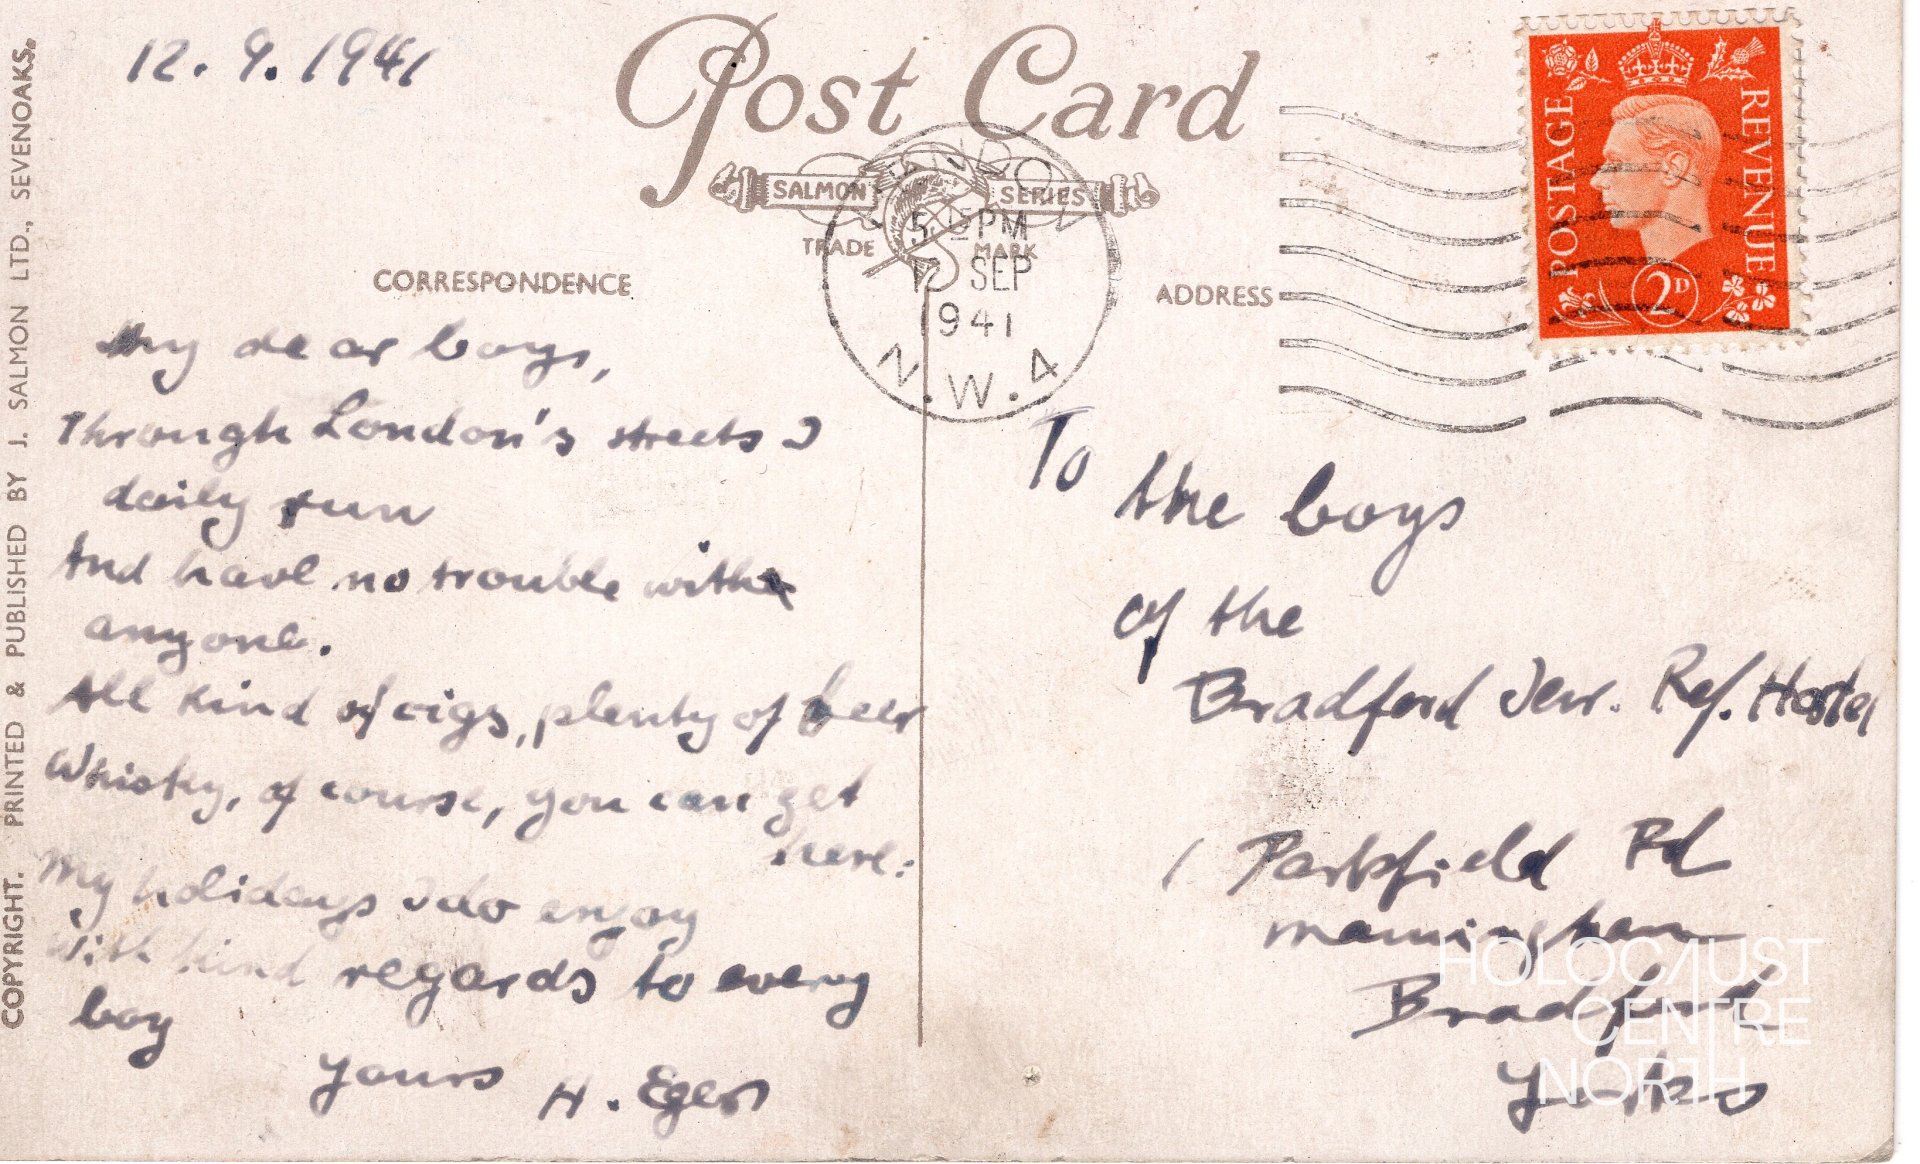 12. 9. 1941
Post Card
SALMON SERIES
TRADE MARK
CORRESPONDENCE
ADDRESS
LONDON
5. 15 PM
12 SEP
1941
N.W.4
POSTAGE REVENUE
2D
COPYRIGHT. PRINTED & PUBLISHED BY J. SALMON LTD., SEVENOAKS.
My dear boys,
Through London's streets I
daily run
And have no trouble with
anyone.
All kind of cigs, plenty of beer
Whisky, of course, you can get
here:
My holidays I do enjoy
With kind regards to every
boy
Yours H. Eger
To
the boys
of the
Bradford Jew. Ref. Hostel
1 Parkfield Rd
Manningham
Bradford
Yorks
HOLOCAUST
CENTRE
NORTH